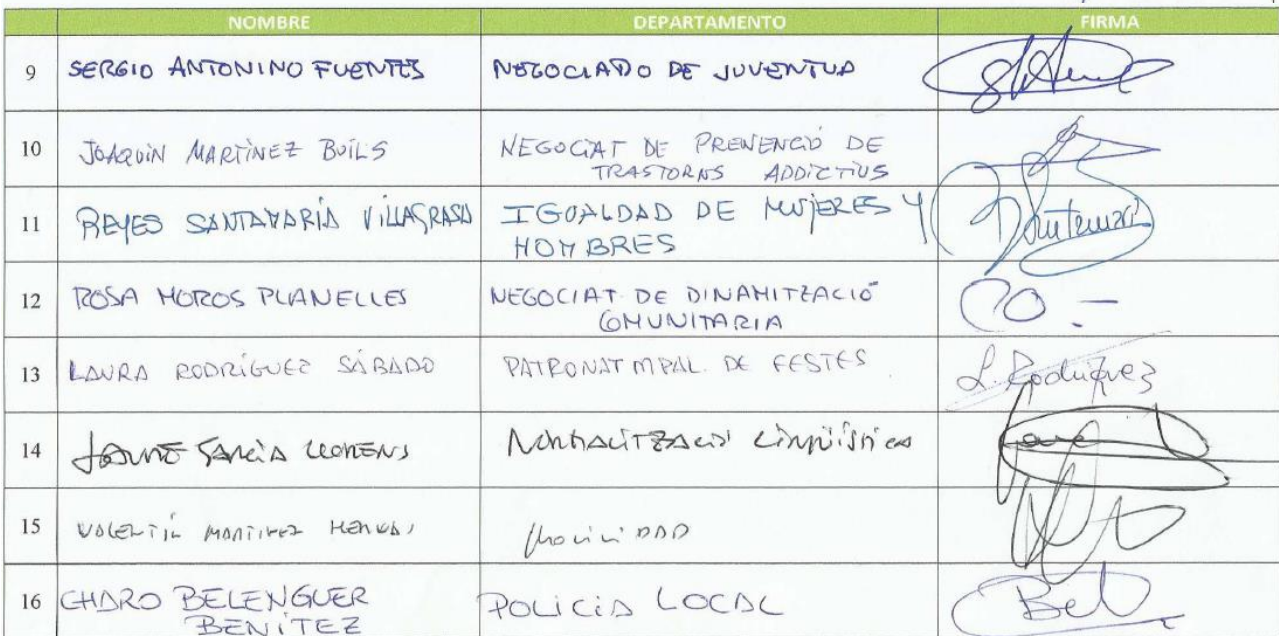 NOMBRE DEPARTAMENTO FIRMA
9 SERGIO ANTONINO FUENTES NEGOCIADO DE JUVENTUD
10 JOAQUÍN MARTÍNEZ BUILS NEGOCIAT DE PREVENCIÓ DE
TRASTORNS ADDICTIUS
11 REYES SANTAMARÍA VILLAGRASA IGUALDAD DE MUJERES Y
HOMBRES
12 ROSA MOROS PLANELLES NEGOCIAT DE DINAMITZACIÓ
COMUNITARIA
13 LAURA RODRÍGUEZ SÁBADO PATRONAT MPAL. DE FESTES L. Rodríguez
14 JAUME GARCIA LLORENS NORMALITZACIÓ LINGÜÍSTICA
15 VALENTÍN MARTINEZ MOVILIDAD
16 CHARO BELENGUER POLICÍA LOCAL Bel
BENÍTEZ